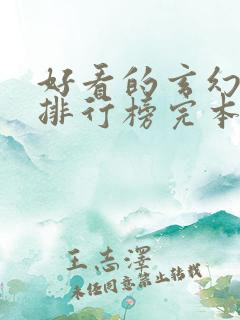 好看的玄幻
排行榜完本
王志泽
未经同意禁止转载